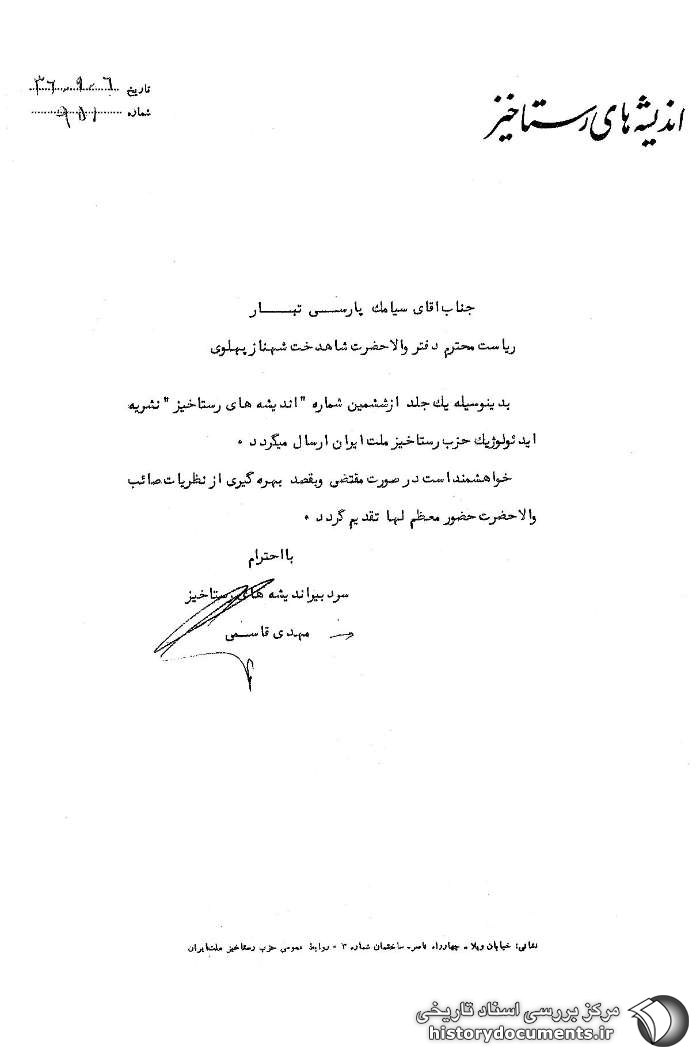 اندیشه های رستاخیز
تاریخ ۳۶-۹-۶
شماره ۹۵۱
جناب اقای سیامك پارسی تبار
ریاست محترم دفتر والاحضرت شاهدخت شهناز پهلوی
بدینوسیله یك جلد ازششمین شماره "اندیشه های رستاخیز" نشریه
ایدئولوژیك حزب رستاخیز ملت ایران ارسال میگردد ۰
خواهشمند است در صورت مقتضی وبقصد بهره گیری از نظریات صائب
والاحضرت حضور معظم لها تقدیم گردد ۰
با احترام
سردبیر اندیشه های رستاخیز
مهدی قاسمی
نشانی: خیابان ویلا - چهارراه ناصر - ساختمان شماره ۳ - روابط عمومی حزب رستاخیز ملت ایران
مرکز بررسی اسناد تاریخی
historydocuments.ir